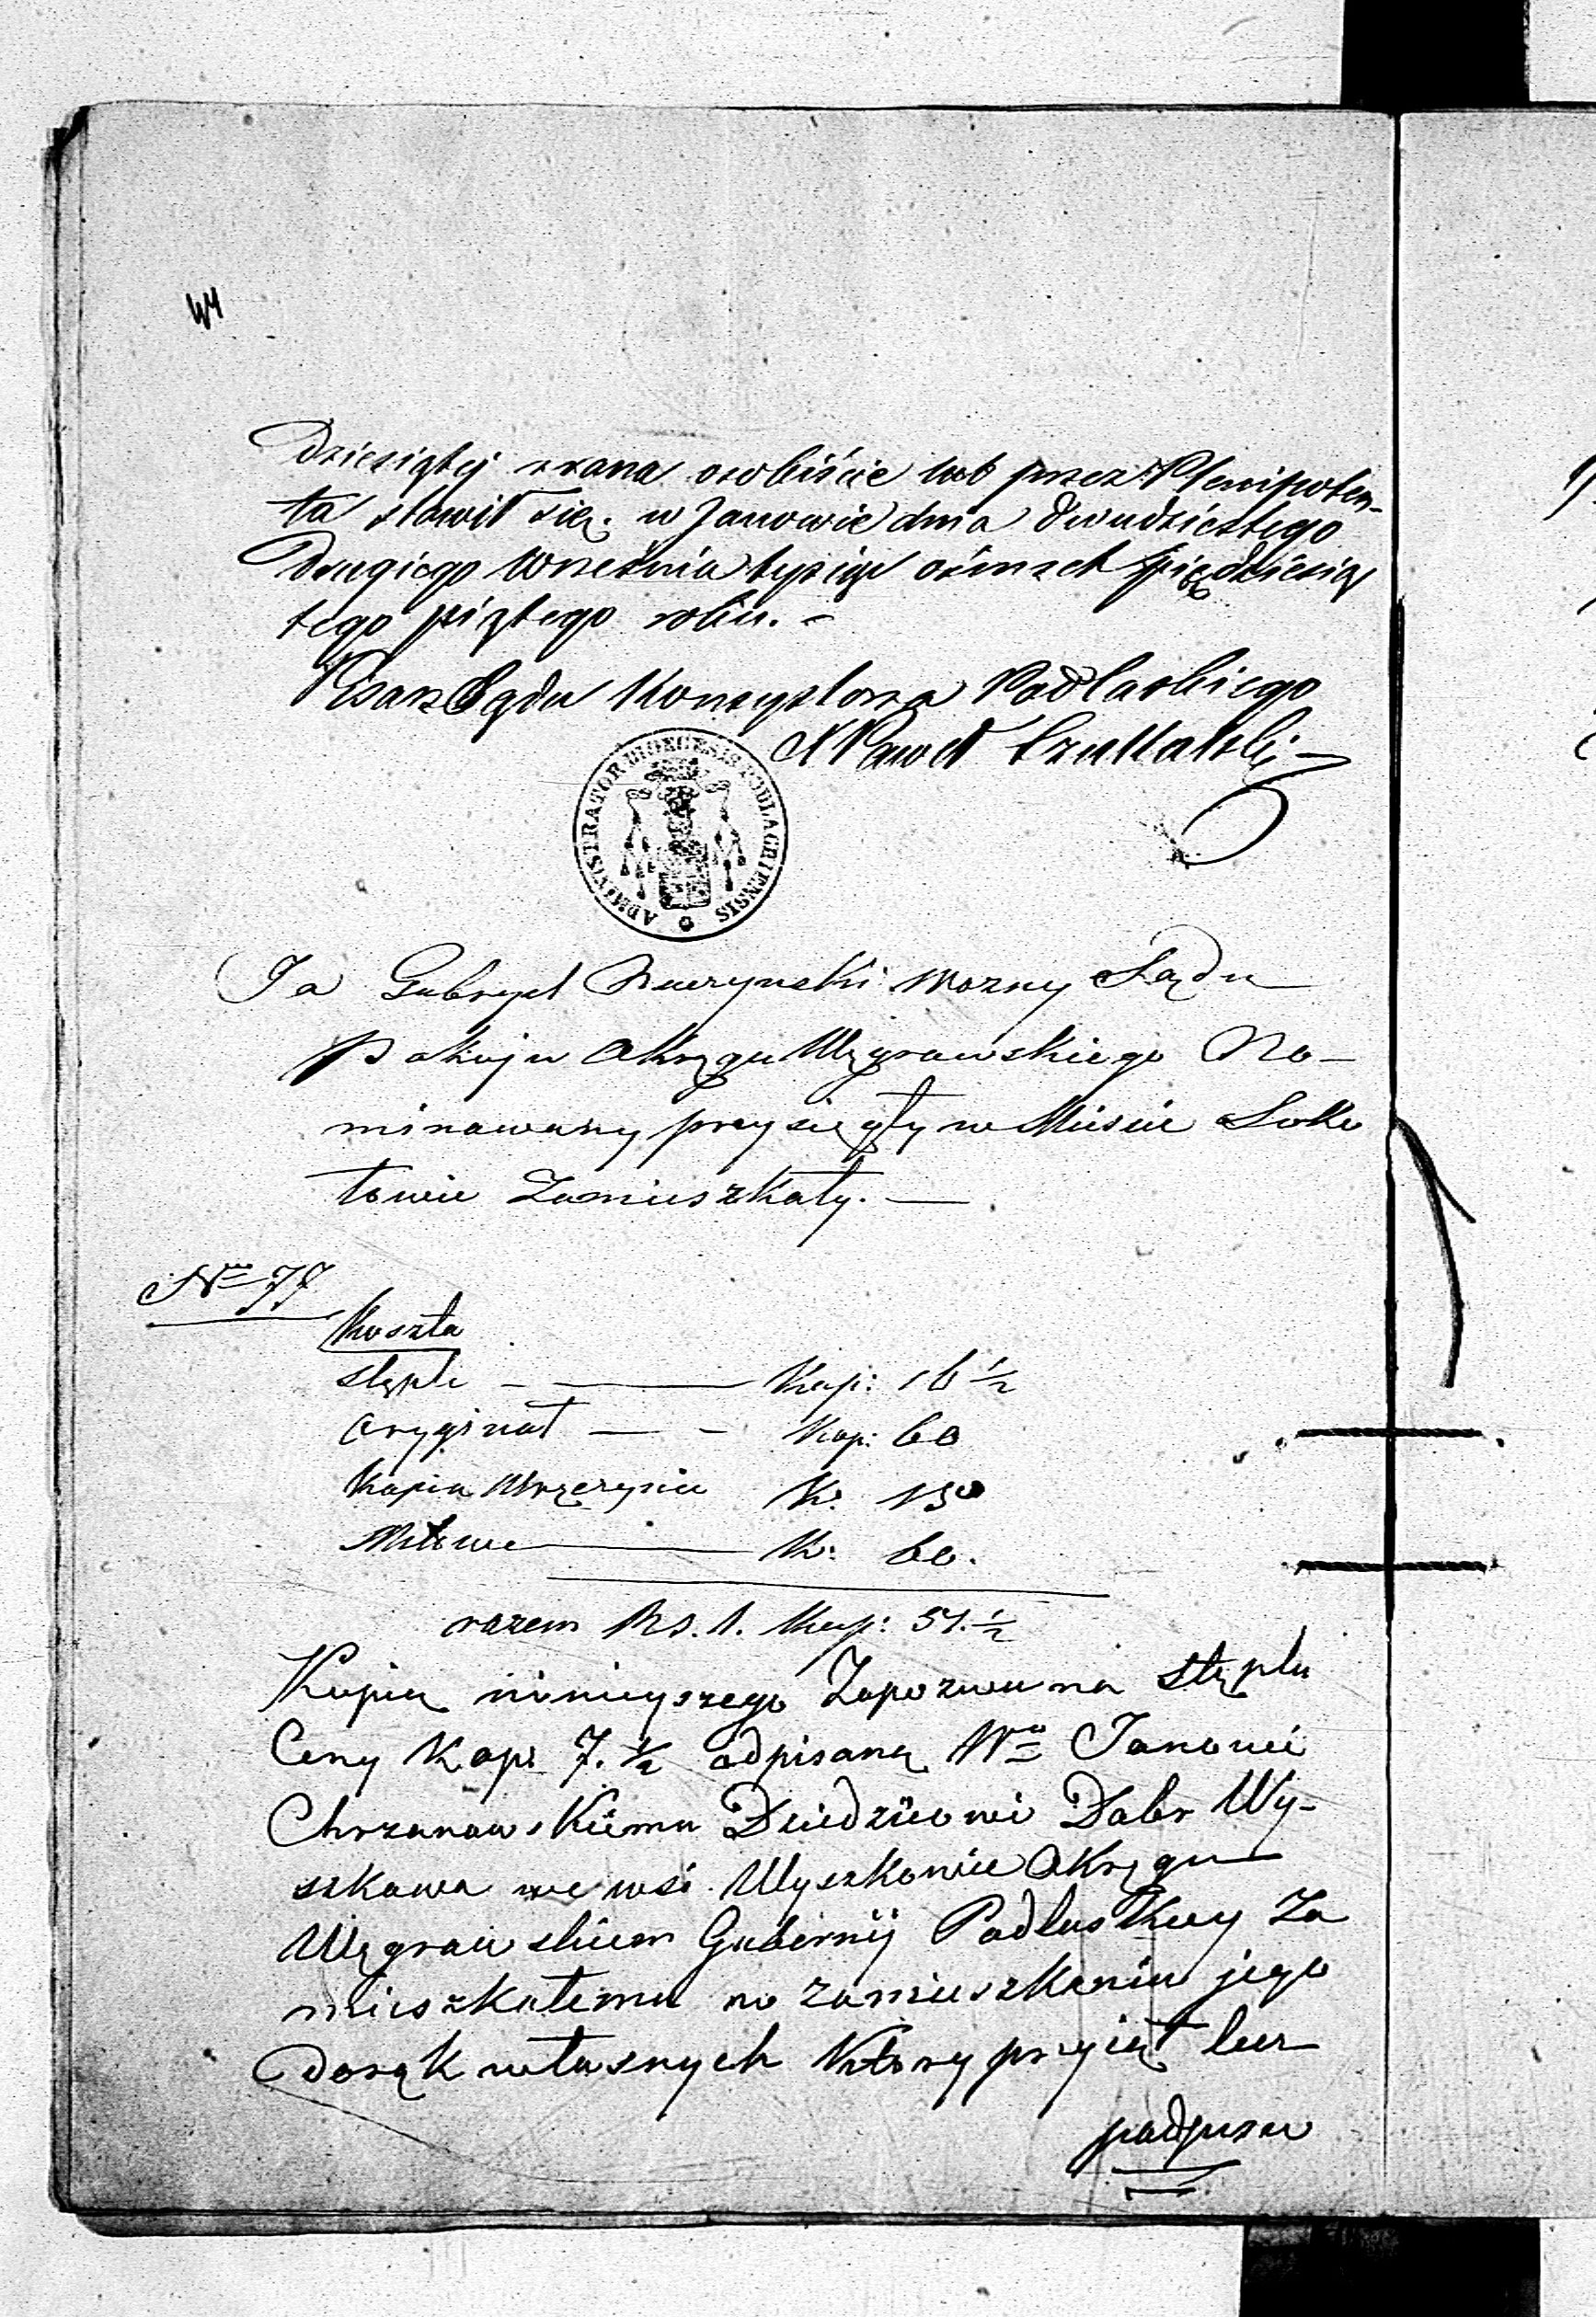 Dziesiątej zrana osobiście lub przez Plenipoten-
ta stawił się. w Janowie dnia dwudziestego
Drugiego Września tysiąc ośmset pięćdziesią
tego piątego roku. -
Pisarz Sądu Konsystorza Podlaskiego
X Paweł
ADMINISTRATOR DIOECESIS PODLACHIENSIS
Ja Gabryel wozny Sądu
Pokoju Okręgu Węgrowskiego No-
minowany przysięgły w Mieście Soko
łowie Zamieszkały. —
Nro 77
Koszta
stępli - — Kop: 16 ½
oryginał — - Kop: 60
Kopia Wręczenie K. 15
Milowe — K: 60.
razem Rs. 1. Kop: 51. ½
Kopią niniejszego Zapozwu na stęplu
Ceny Kop: 7. ½ odpisaną Wu Janowi
Chrzanowskiemu Dziedzicowi Dobr Wy-
szkowa we wsi Wyszkowie Okręgu
Węgrowskiem Gubernij Podlaskiey Za
mieszkałemu w zamieszkaniu jego
do rąk własnych Który przyiął lecz
podpisu